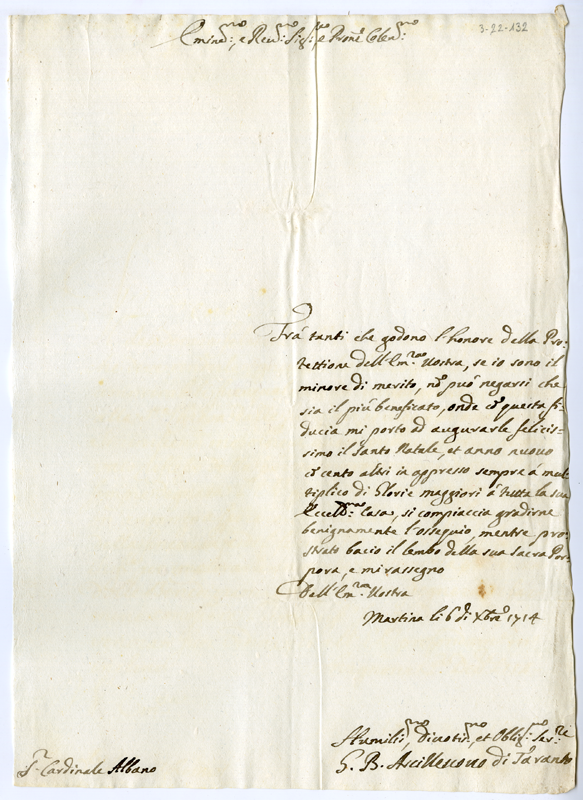 Emin.mo: e Rev.mo: Sig.re e Pron̄e Colen.mo:
3-22-132
Frà tanti che godono l'honore della Pro-
tettione dell'Em.za Vostra, se io sono il
minore di merito, nō può negarsi che
sia il più beneficato, onde cō questa fi-
ducia mi porto ad augurarle felicis-
simo il Santo Natale, et anno nuovo
cō cento altri in appresso sempre à mul
tiplico di Glorie maggiori à tutta la sua
Eccell.ma: Casa, si compiaccia gradirne
benignamente l'ossequio, mentre pro-
strato bacio il lembo della sua Sacra Por-
pora, e mi rassegno
Dell'Em.za Vostra
Martina li 6 di Xbre 1714
S.r Cardinale Albano
Humilis.mo Divotis.mo: et Oblig.mo: Ser.re
G. B. di Taranto